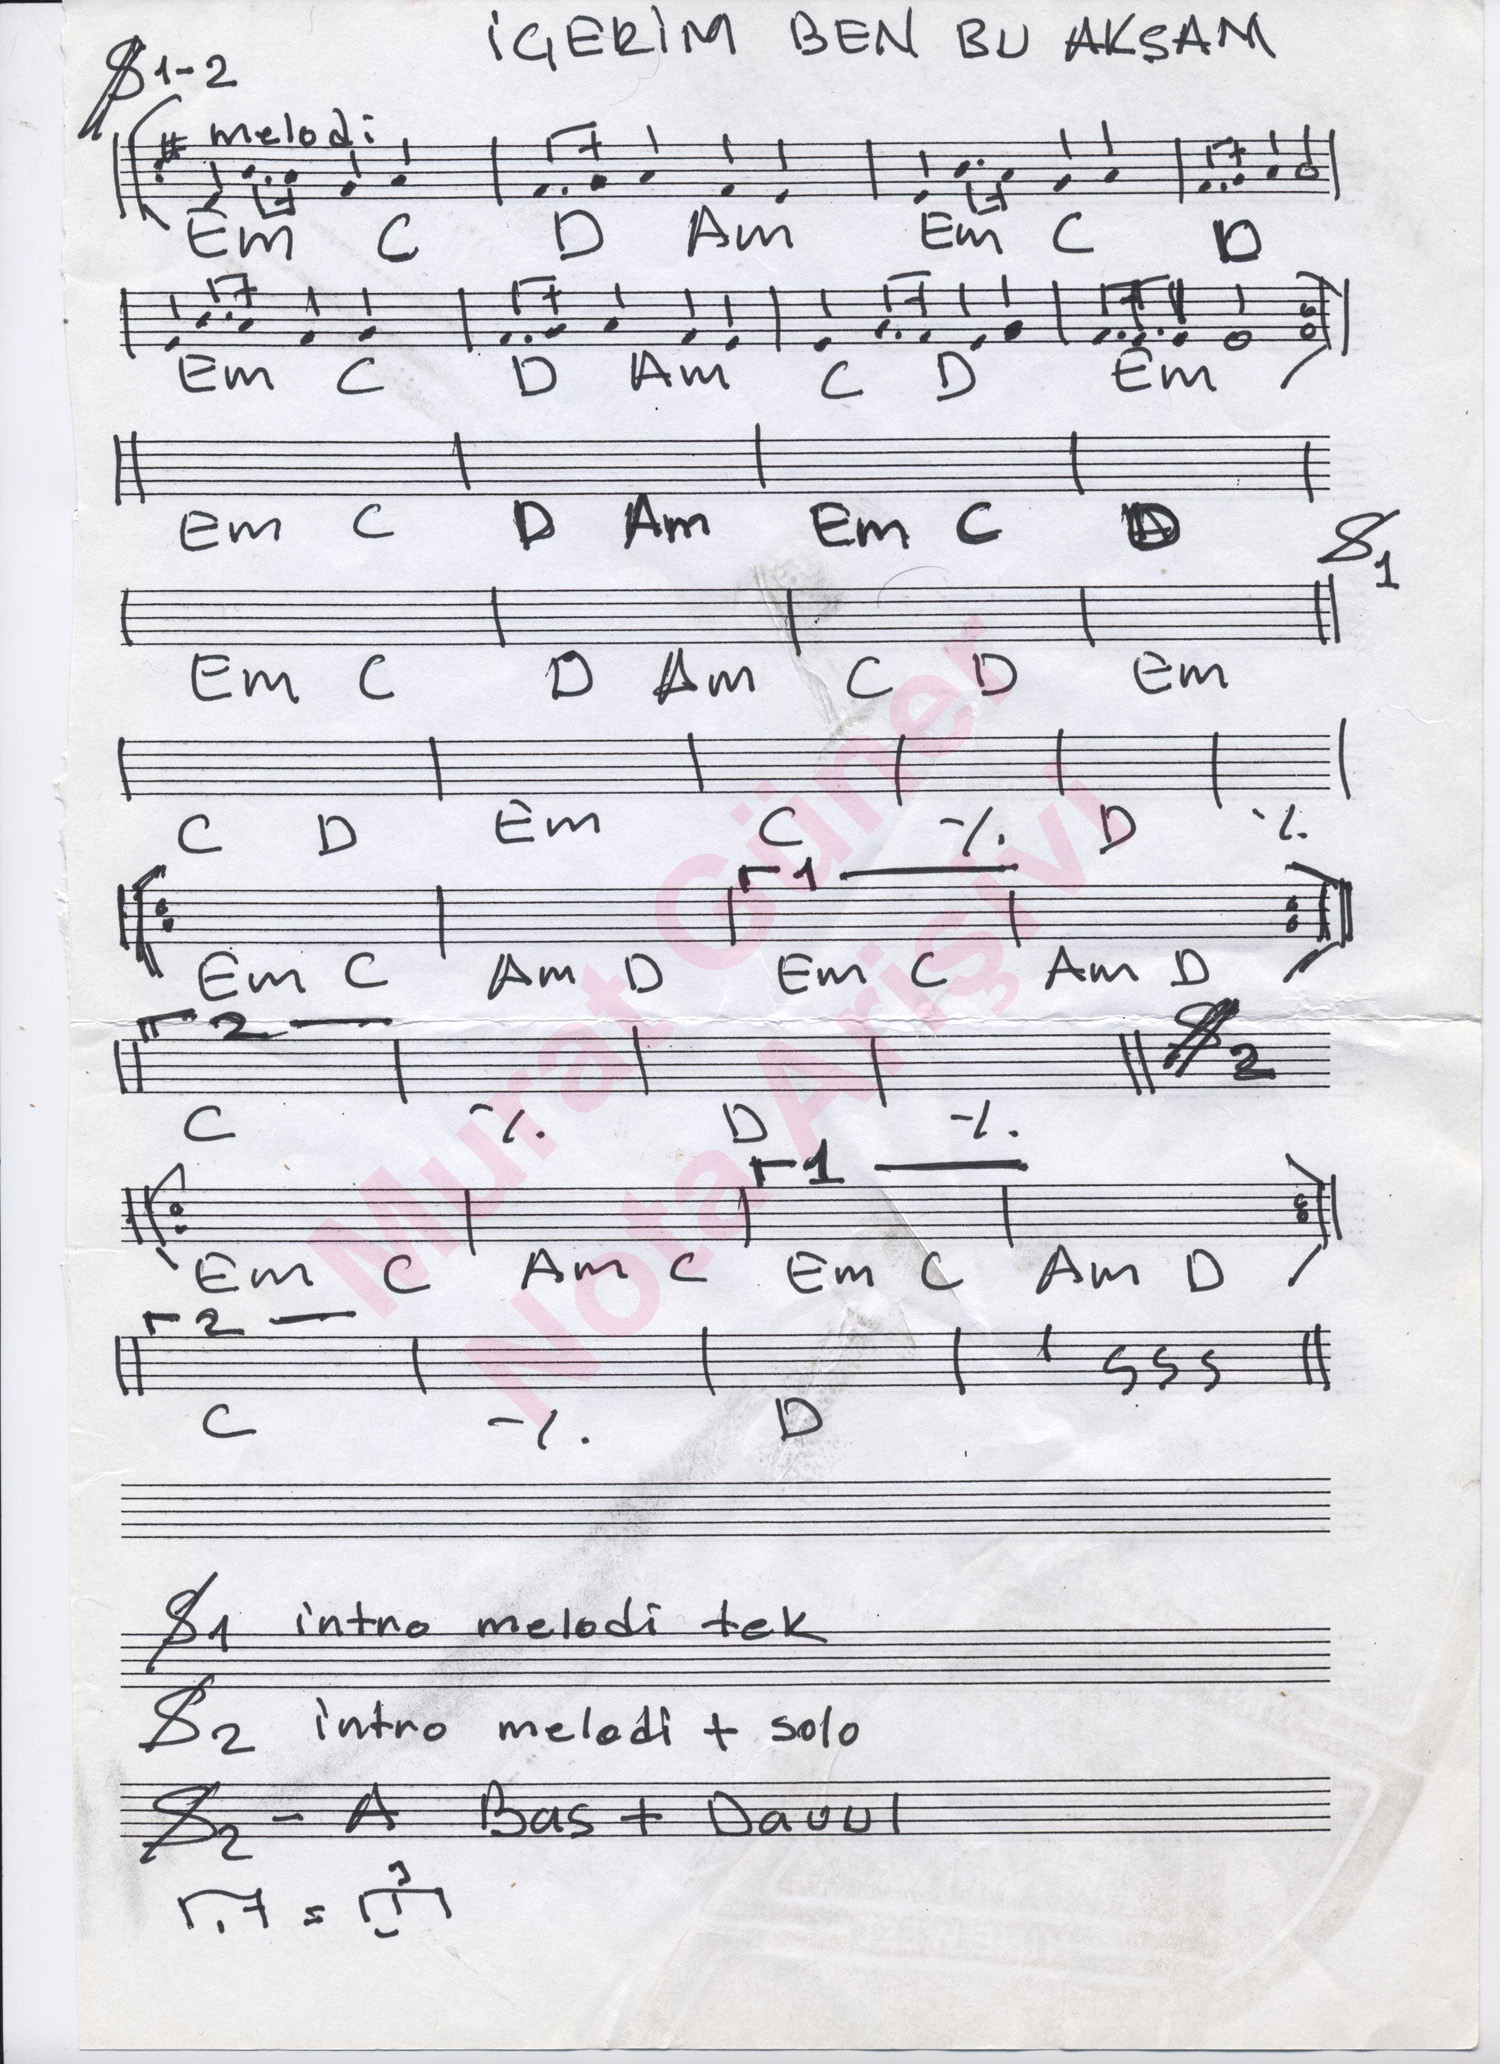 İÇERİM BEN BU AKŞAM
1-2
melodi
Em C D Am Em C D
Em C D Am C D Em
Em C D Am Em C D
1
Em C D Am C D Em
C D Em C -/. D ·/.
1
Em C Am D Em C Am D
2
2
C ·/. D -/.
1
Em C Am C Em C Am D
2
C -/. D
1 intro melodi tek
2 intro melodi + solo
2 - A Bas + Davul
3
Murat Güner
Nota Arişivi